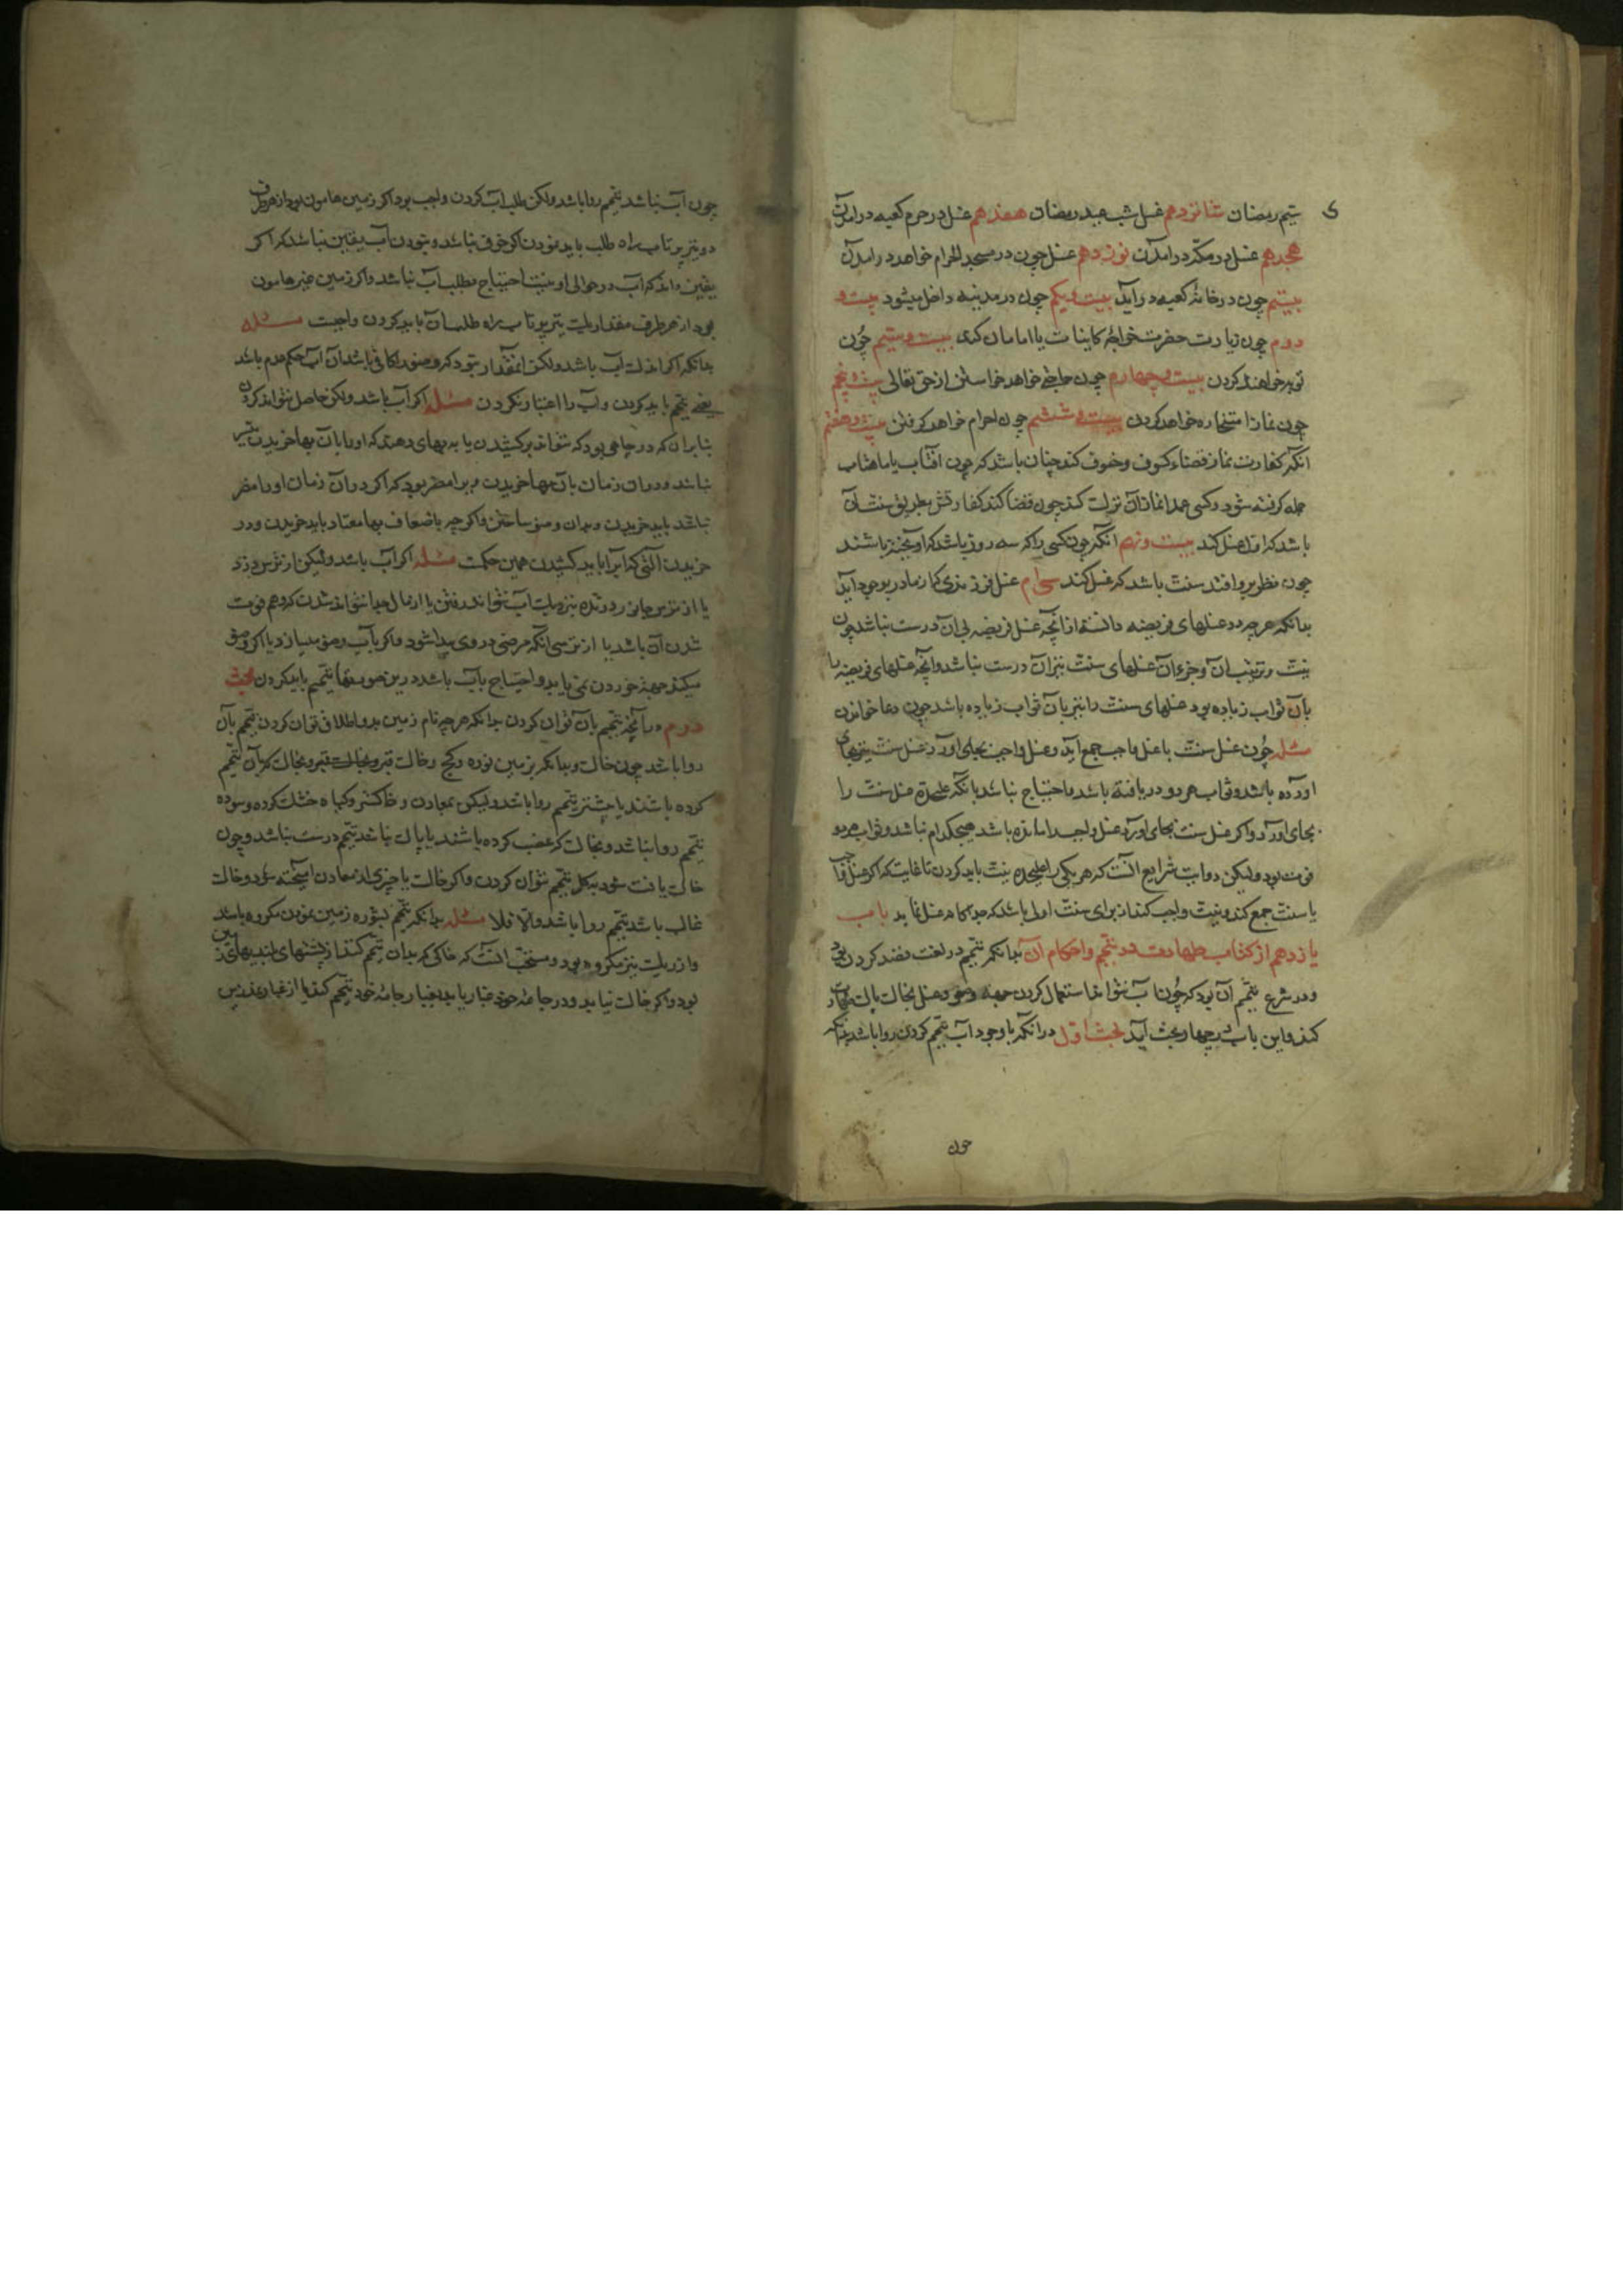 ستیم رمضان شانزدهم غسل شب عید رمضان هفدهم غسل در حرم کعبه در امدن
هجدهم غسل در مکّه در امدن نوزدهم غسل چون در مسجد الحرام خواهد در امدن
بیستم چون در خانهٔ کعبه در آید بیست و یکم چون در مدینه داخل میشود بیست و
دوم چون زیارت حضرت خواجهٔ کاینات یا امامان کند بیست و سیّم چون
توبه خواهند کردن بیست و چهارم چون حاجتی خواهد خواستن از حق تعالی بیست و پنجم
چون نماز استخاره خواهد کردن بیست و ششم چون احرام خواهد گرفتن بیست و هفتم
انکه کفارت نماز قضاء کسوف و خسوف کند چنان باشد که چون افتاب یا ماهتاب
جمله گرفته شود و کسی عمدا نماز آن ترک کند چون قضا کند کفارتش بطریق سنت آن
باشد که اوّل غسل کند بیست و نهم انکه چون کسی را که سه روز باشد که آویخته باشند
چون نظر برو افتد سنت باشد که غسل کند سی ام غسل فرزندی که از مادر بوجود آید
بدانکه هر چه در غسلهای فریضه دانستهٔ از آنچه غسل فریضه بی آن درست نباشد چون
نیت و ترتیب آن و جز آن غسلهای سنت نیز بی آن درست نباشد و آنچه غسلهای فریضه را
بآن ثواب زیاده بود غسلهای سنت را نیز بآن ثواب زیاده باشد چون دعا خواندن
مسئله چون غسل سنت با غسل واجب جمع آید و غسل واجب بجای اورد غسل سنت نیز بجای
اورده باشد و ثواب هر دو دریافته باشد و احتیاج نباشد بانکه علیحده غسل سنت را
بجای اورد و اگر غسل سنت بجای اورد و غسل واجب را مانده باشد هیچکدام نباشد و ثواب هر دو
فوت بود و لیکن روایت شرایع انست که هر یکی را علیحده نیت باید کردن تا غایت که اگر غسل واجب
با سنت جمع کند و نیت واجب کند از برای سنت اولی باشد که جداگانه غسل نماید باب
یازدهم از کتاب طهارت در تیمّم و احکام آن بدانکه تیمّم در لغت قصد کردن بود
و در شرع تیمّم آن بود که چون آب نتواند استعمال کردن جهت وضو و غسل بخاک پاک طهارت
کند و این باب در چهار بحث آید بحث اوّل در آنکه با وجود آب تیمّم کردن روا باشد بدانکه
چون
چون آب نباشد تیمّم روا باشد و لکن طلب آب کردن واجب بود اگر زمین هامون بود از هر طرف
دو تیر پرتاب راه طلب باید نمودن اگر خوف نباشد و بنبودن آب یقین نباشد که اگر
یقین داند که آب در حوالی او نیست احتیاج بطلب آب نباشد و اگر زمین غیر هامون
بود از هر طرف مقدار یک تیر پرتاب راه طلب آن باید کردن واجبست مسئله
بدانکه اگر اندک آب باشد و لکن انمقدار نبود که وضو را کافی باشد آن آب حکم عدم باشد
یعنی تیمّم باید کردن و آب را اعتبار نکردن مسئله اگر آب باشد و لکن حاصل نتواند کردن
بنا بر ان که در چاهی بود که نتواند بر کشیدن یا به بهای دهند که او را بآن بها خریدن میسّر
نباشد و در ان زمان بآن بها خریدن و برا مضر بود که اگر در ان زمان او را مضر
نباشد باید خریدن و بدان وضو ساختن و اگر چه باضعاف بها معتاد باید خریدن و در
خریدن التی که آبرا باید کشیدن همین حکمست مسئله اگر آب باشد و لیکن از ترس دزدی
یا از ترس جانور درنده نزدیک آب نتواند رفتن یا از مال جدا نتواند شدن که وهم فوت
شدن آن باشد یا از ترسی انکه مرضی در وی پیدا شود و اگر بآب وضو میسازد یا اگر وضو
میکند جهة خوردن نمی یابد و احتیاج بآب باشد درین صورتها تیمّم باید کردن بحث
دوم در آنچه تیمّم بآن توان کردن بدانکه هر چه نام زمین بدو اطلاق توان کردن تیمّم بآن
روا باشد چون خاک و بدانکه بزمین نوره و گچ و خاک قبر و بخاک که بآن تیمّم
کرده باشند پیشتر تیمّم روا باشد و لیکن بمعادن و خاکستر و گیاه خشک کرده و سوده
تیمّم روا نباشد و بخاک که غصب کرده باشند یا پاک نباشد تیمّم درست نباشد و چون
خاک یافت شود بگل تیمّم نتوان کردن و اگر خاک با چیزی از معادن آمیخته شود و خاک
غالب باشد تیمّم روا باشد والّا فلا مسئله بدانکه تیمّم بشوره زمین نمودن مکروه باشد
و از ریک نیز مکروه بود و مستحب انست که خاکی که بدان تیمّم کند از پشتهای بلندیهای زمین
بود و اگر خاک نیابد و در جامهٔ خود غبار یابد بغبار جامهٔ خود تیمّم کند یا از غبار نمد زین